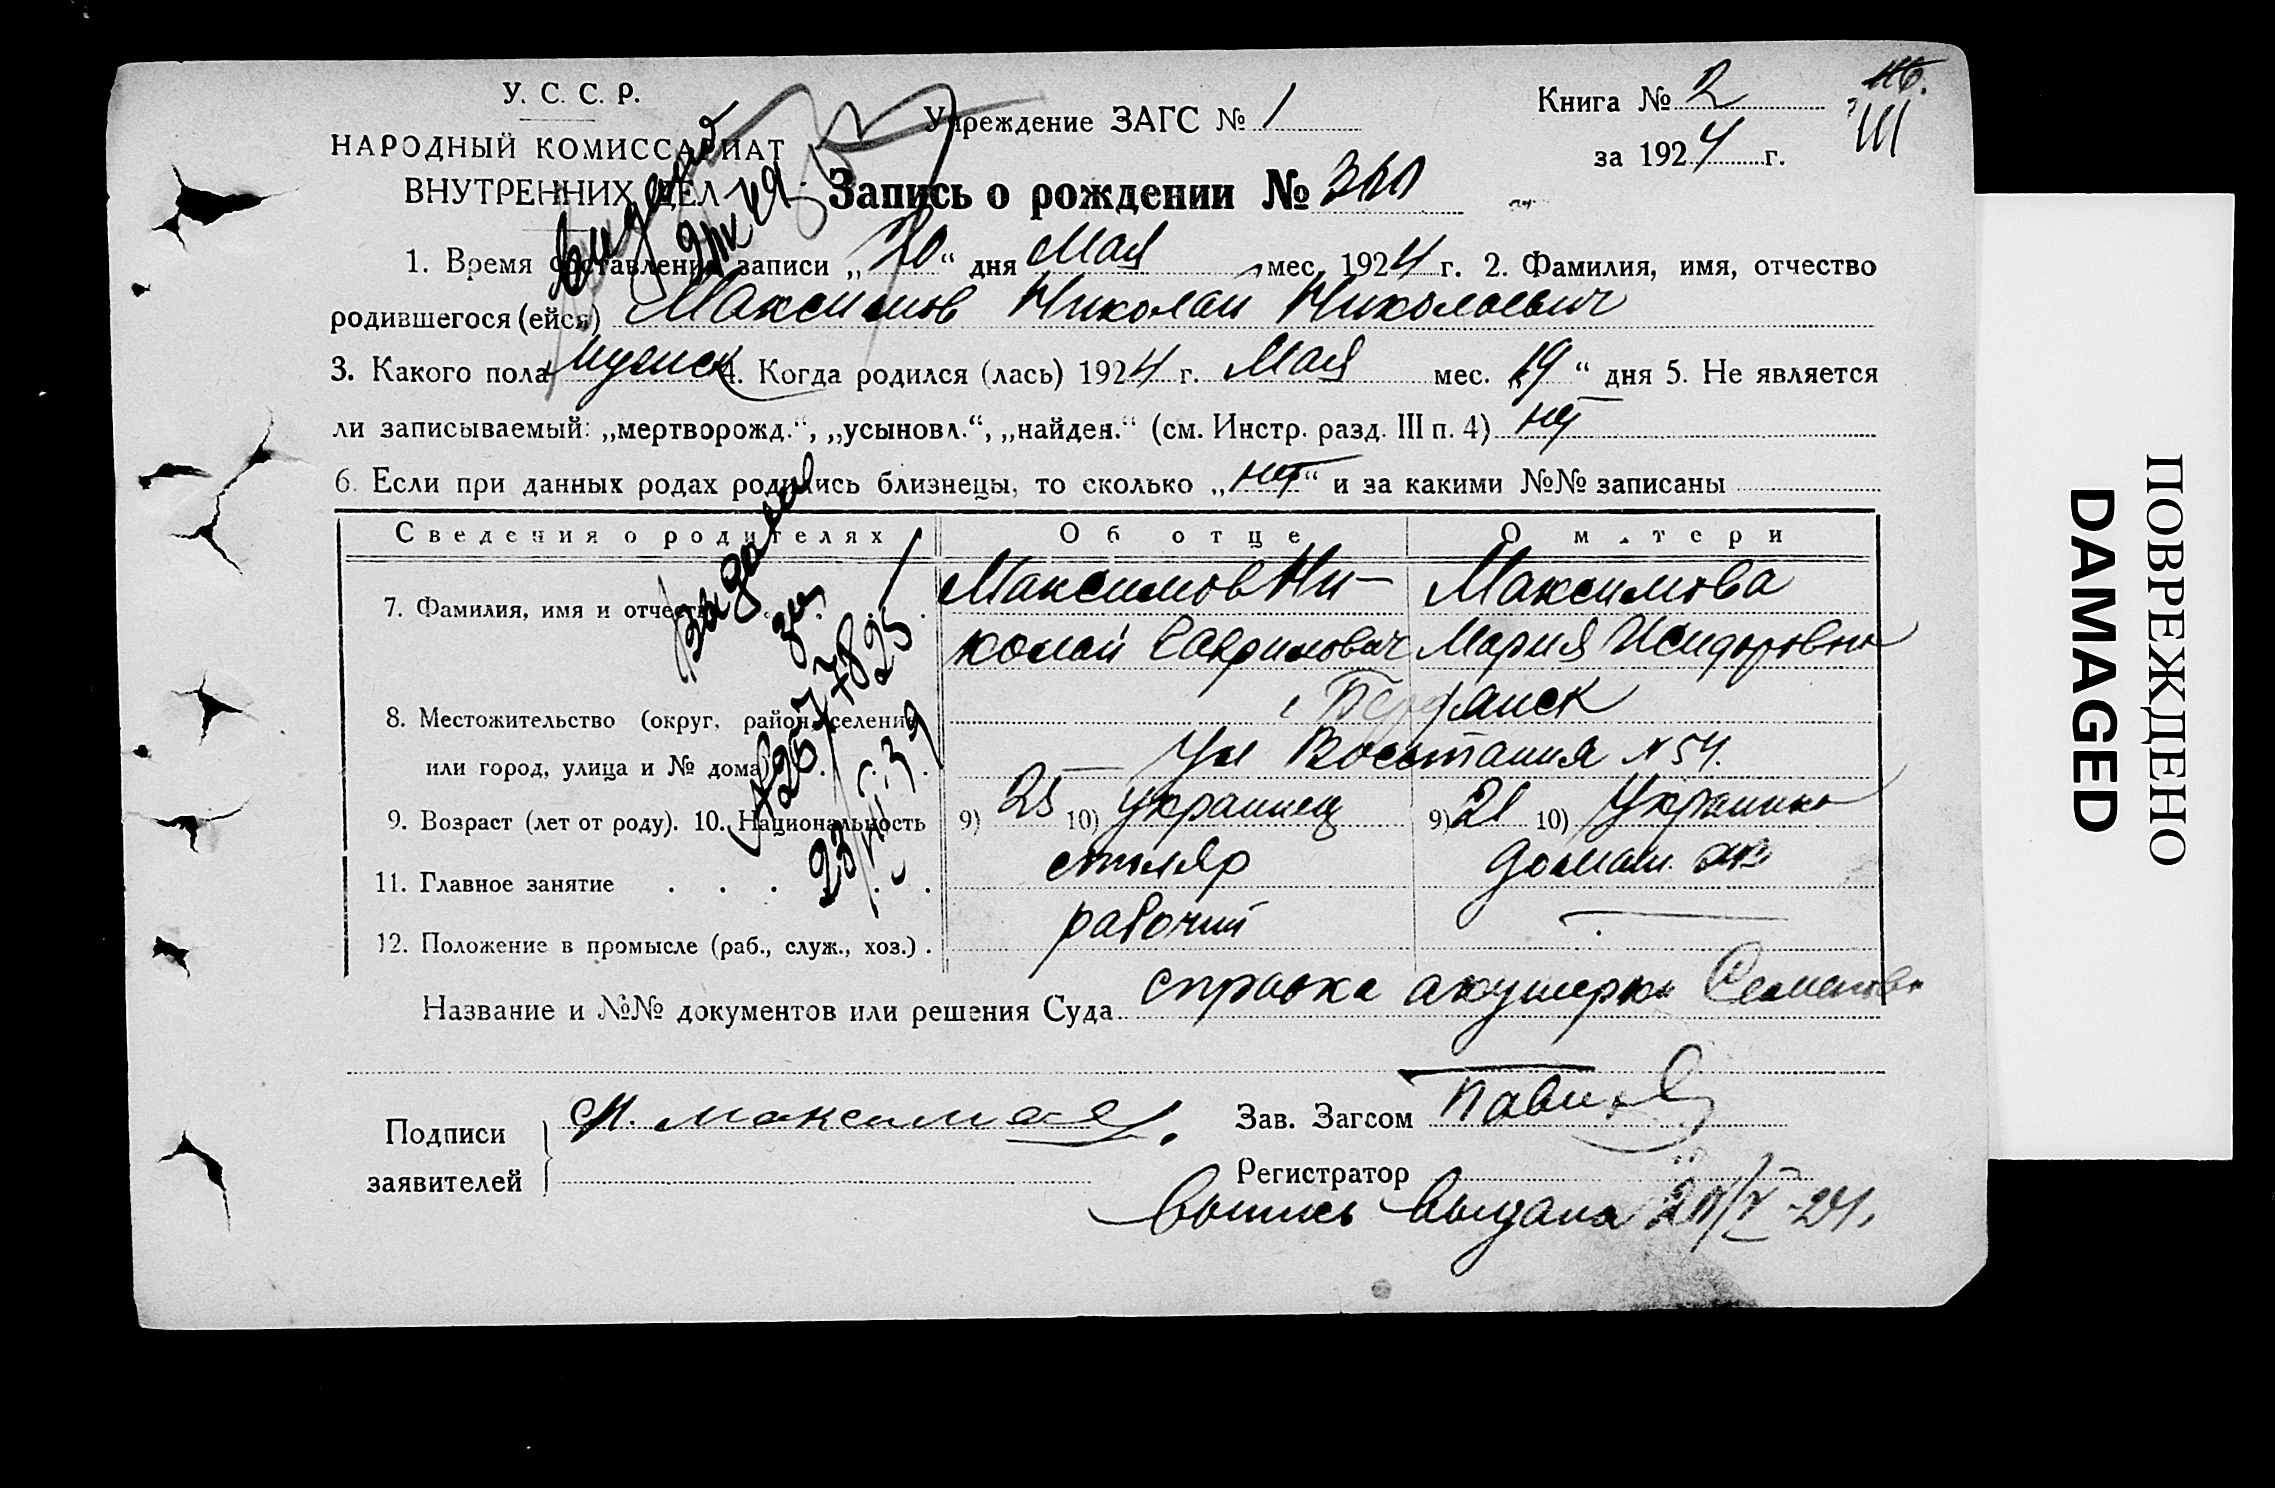 У. С. С. Р.
НАРОДНЫЙ КОМИССАРИАТ
ВНУТРЕННИХ ДЕЛ
Учреждение ЗАГС № 1
Книга № 2
за 1924 г.
111
Запись о рождении № 360
1. Время составления записи „20“ дня Мая мес. 1924 г. 2. Фамилия, имя, отчество
родившегося (ейся) Максимов Николай Николаевич
3. Какого пола мужск 4. Когда родился (лась) 1924 г. Мая мес. „19“ дня 5. Не является
ли записываемый: „мертворожд.“, „усыновл.“, „найден.“ (см. Инстр. разд. III п. 4) нет
6. Если при данных родах родились близнецы, то сколько „нет“ и за какими №№ записаны
Сведения о родителях Об отце О матери
7. Фамилия, имя и отчество Максимов Ни- Максимова
колай Гаврилович Мария Исидоровна
8. Местожительство (округ, район, селение г. Бердянск
или город, улица и № дома) Ул Восстания № 54.
9. Возраст (лет от роду). 10. Национальность 9) 25 10) украинец 9) 21 10) Украинка
11. Главное занятие столяр домаш. хоз
12. Положение в промысле (раб., служ., хоз.) рабочий —
Название и №№ документов или решения Суда справка акушерки Семенова
Подписи заявителей Н. Максимов
Зав. Загсом
Регистратор
Выпись выдана 20/V-24.
Выдано
ПОВРЕЖДЕНО
DAMAGED